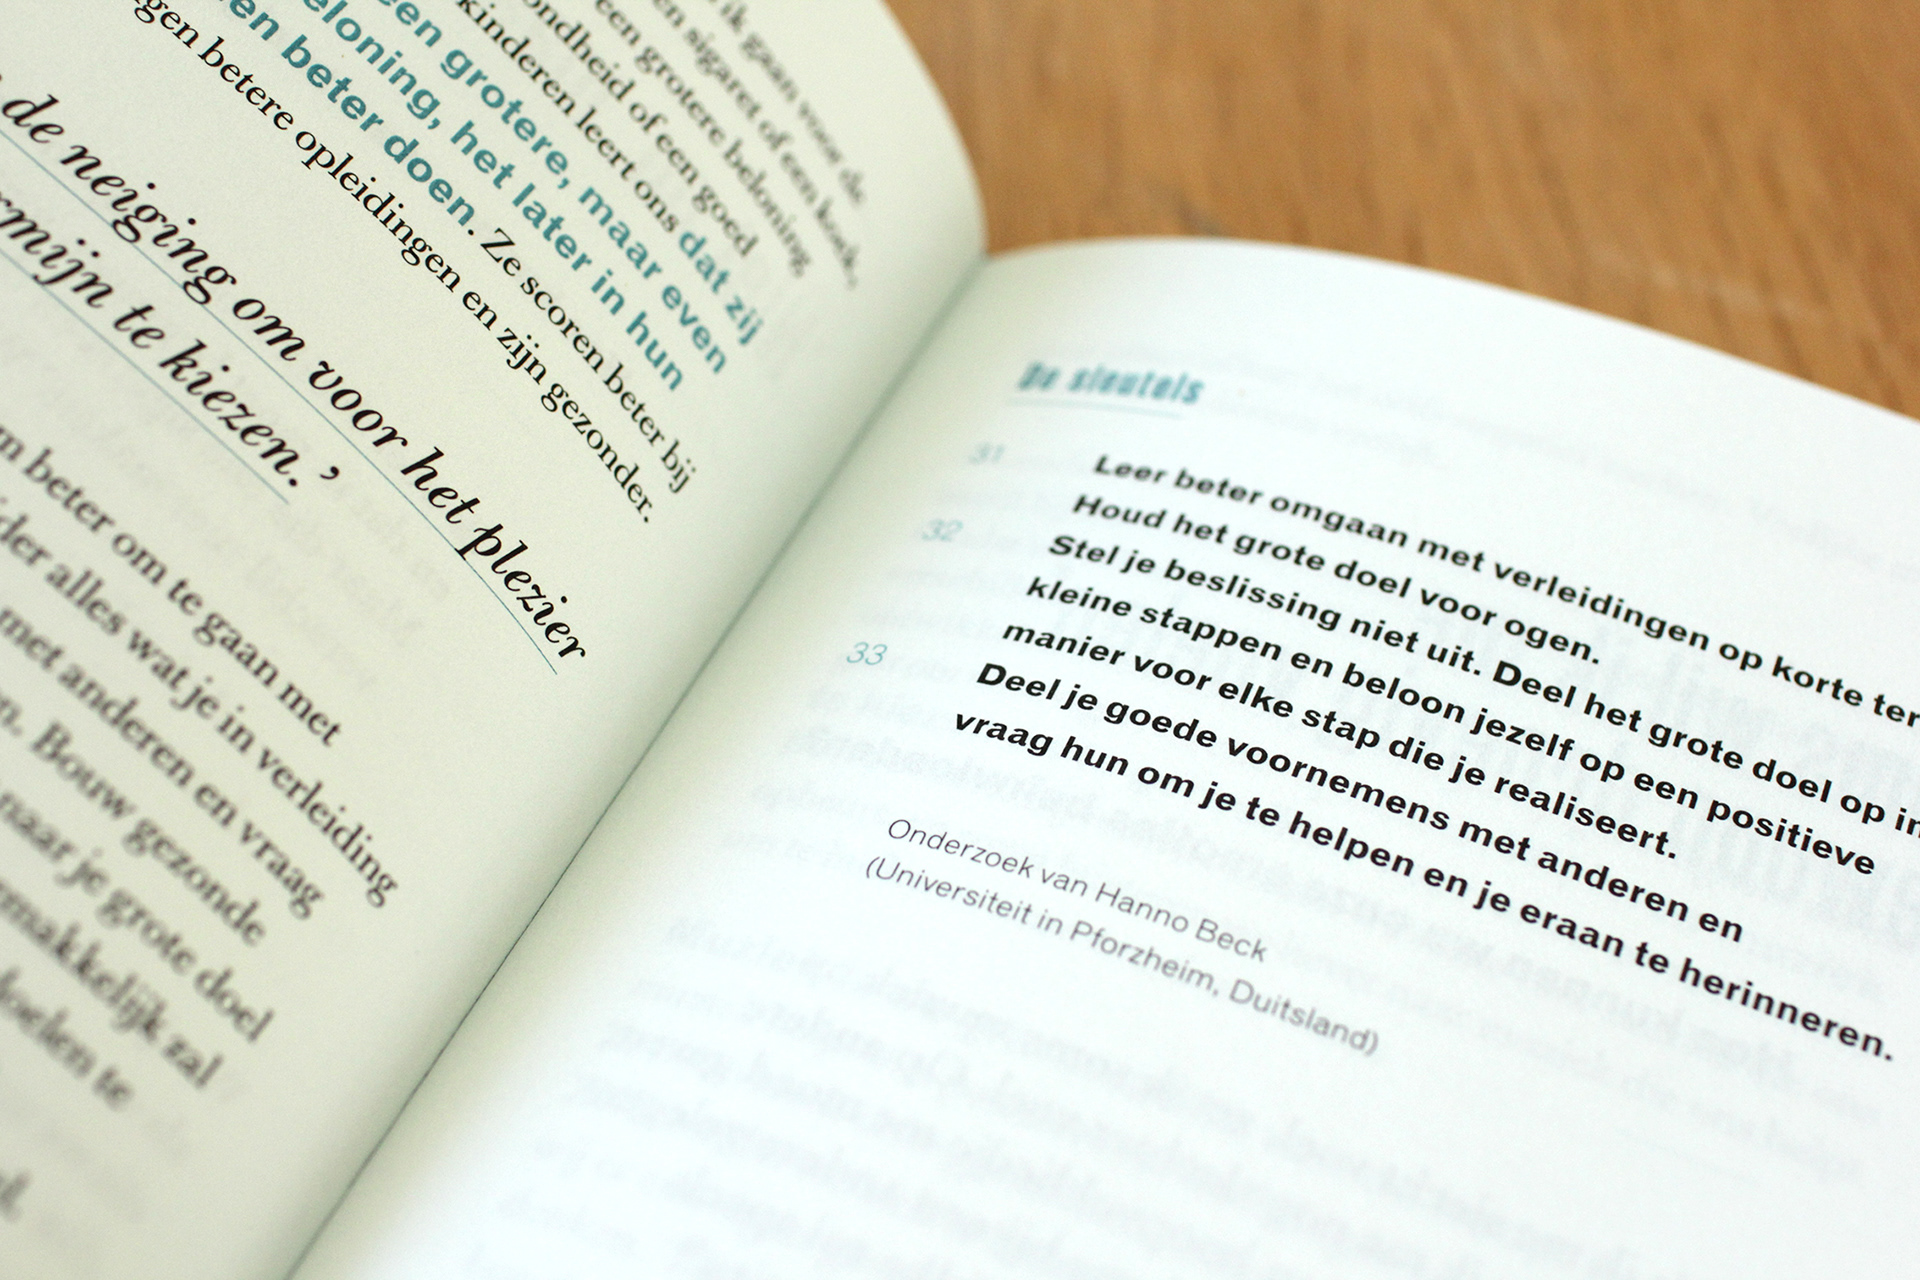 ik gaan voor de
en sigaret of een koek,
een grotere beloning
ondheid of een goed
kinderen leert ons dat zij
een grotere, maar even
eloning, het later in hun
en beter doen. Ze scoren beter bij
gen betere opleidingen en zijn gezonder.
de neiging om voor het plezier
rmijn te kiezen.’
m beter om te gaan met
der alles wat je in verleiding
met anderen en vraag
n. Bouw gezonde
naar je grote doel
makkelijk zal
doelen te
De sleutels
31 Leer beter omgaan met verleidingen op korte ter
Houd het grote doel voor ogen.
32 Stel je beslissing niet uit. Deel het grote doel op in
kleine stappen en beloon jezelf op een positieve
manier voor elke stap die je realiseert.
33 Deel je goede voornemens met anderen en
vraag hun om je te helpen en je eraan te herinneren.
Onderzoek van Hanno Beck
(Universiteit in Pforzheim, Duitsland)